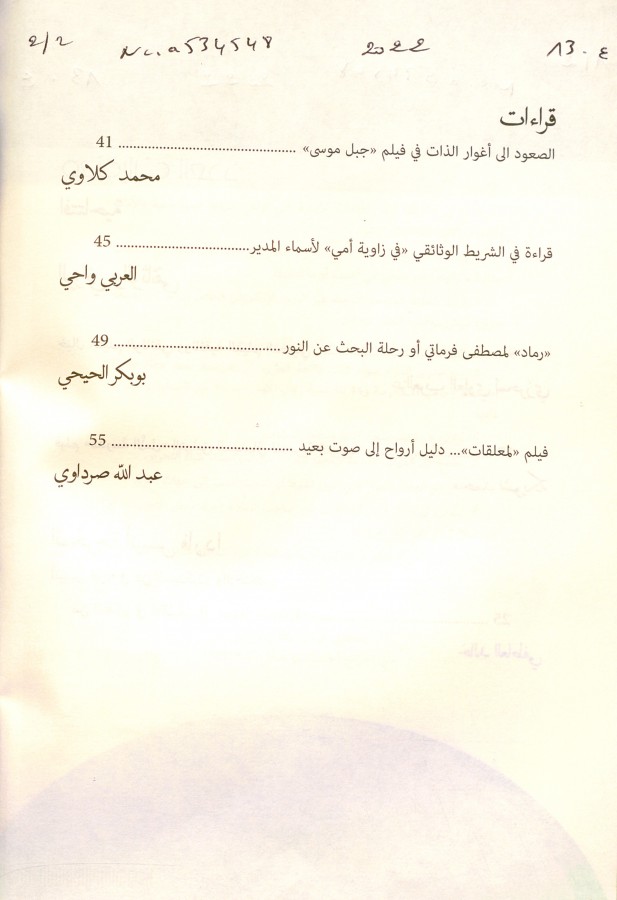 2/2 Nc.a534548 2022 13.ع
قراءات
الصعود الى أغوار الذات في فيلم «جبل موسى» ............................................... 41
محمد كلاوي
قراءة في الشريط الوثائقي «في زاوية أمي» لأسماء المدير................................... 45
العربي واحي
«رماد» لمصطفى فرماتي أو رحلة البحث عن النور............................................ 49
بوبكر الحيحي
فيلم «لمعلقات»... دليل أرواح إلى صوت بعيد ................................................ 55
عبد الله صرداوي